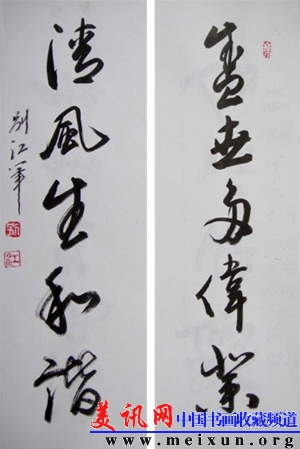 盛世多偉業
清風生和諧
别江軍
美讯网
中国书画收藏频道
www.meixun.org